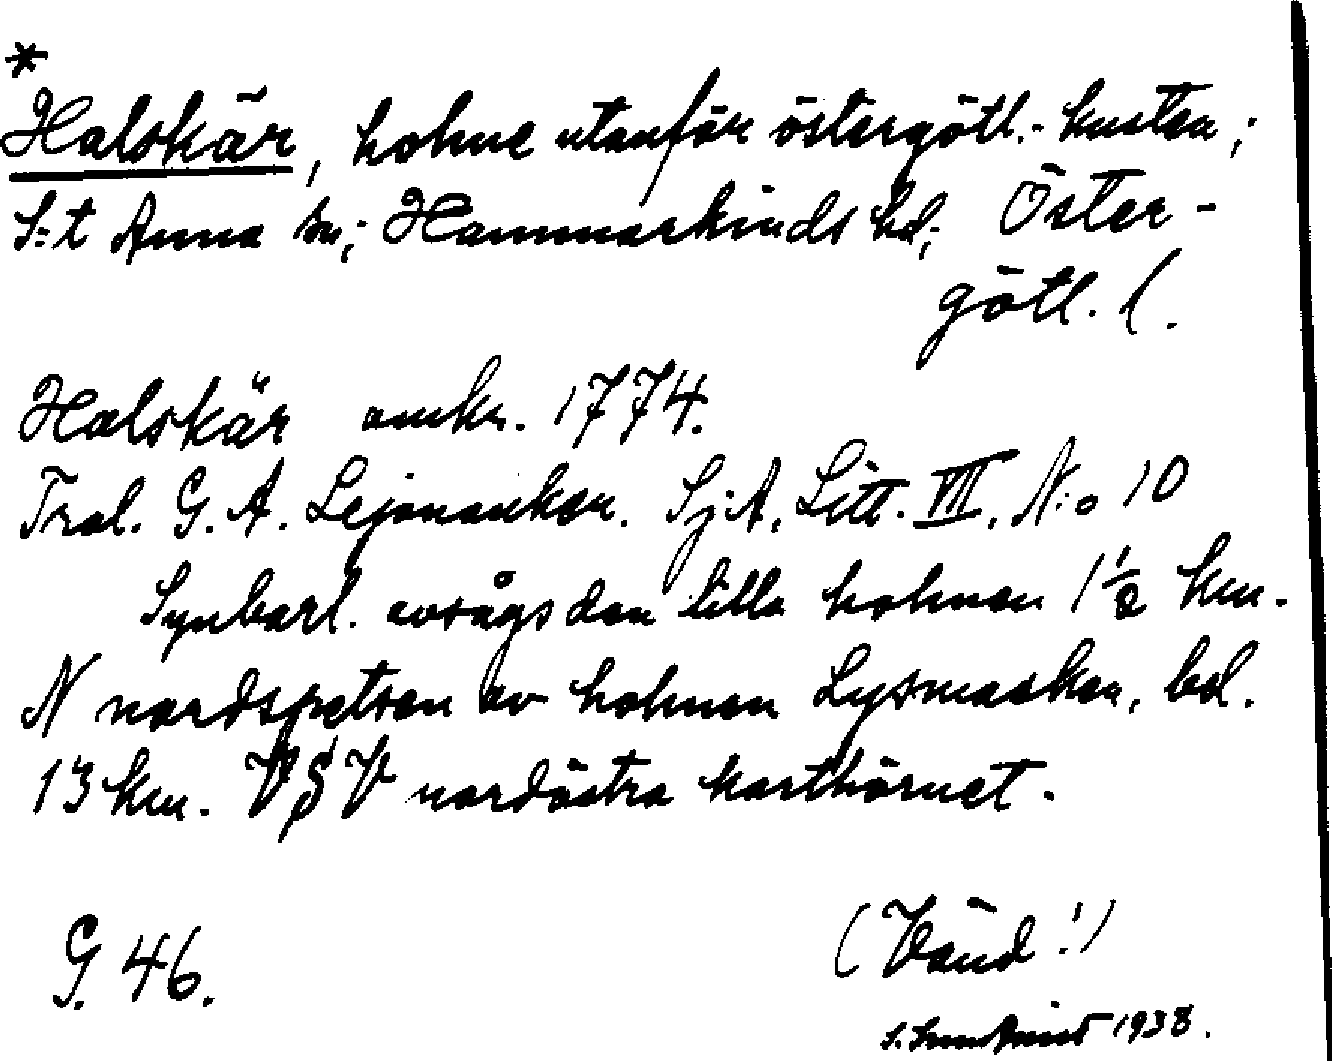 *
Halskär, holme utanför östergötl.-kusten;
S:t Anna sn; Hammarkinds hd; Öster-
götl. l.
Halskär omkr. 1774.
Trol. G. A. Lejonanker. SjA, Litt. VIII, N:o 10
Synbarl. avsågs den lilla holmen 1 1/2 km.
N nordspetsen av holmen Lysmasken, bel.
13 km. VSV nordöstra karthörnet.
G. 46.
(Vänd!)
S. 1938.